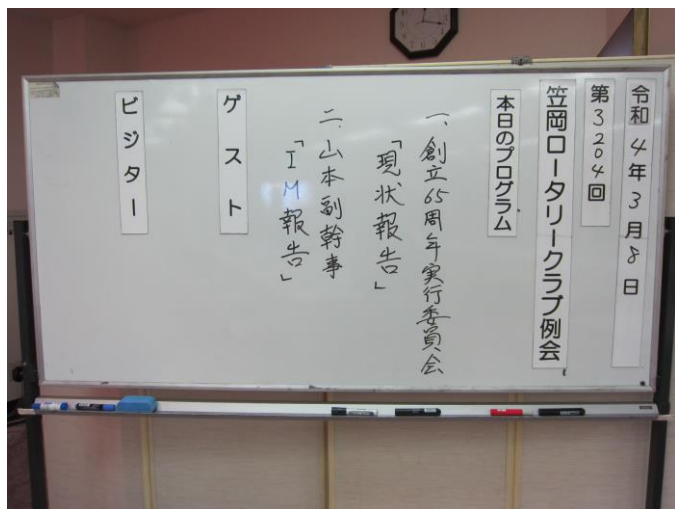 令和4年3月8日
第3204回
笠岡ロータリークラブ例会
本日のプログラム
一、創立65周年実行委員会
「現状報告」
二、山本副幹事
「IM報告」
ゲスト
ビジター